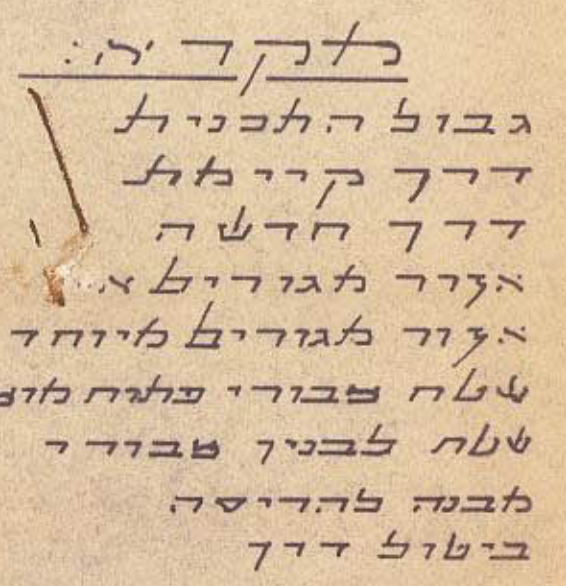 מקרא:
גבול התכנית
דרך קיימת
דרך חדשה
אזור מגורים א
אזור מגורים מיוחד
שטח צבורי פתוח
שטח לבנין צבורי
מבנה להריסה
ביטול דרך